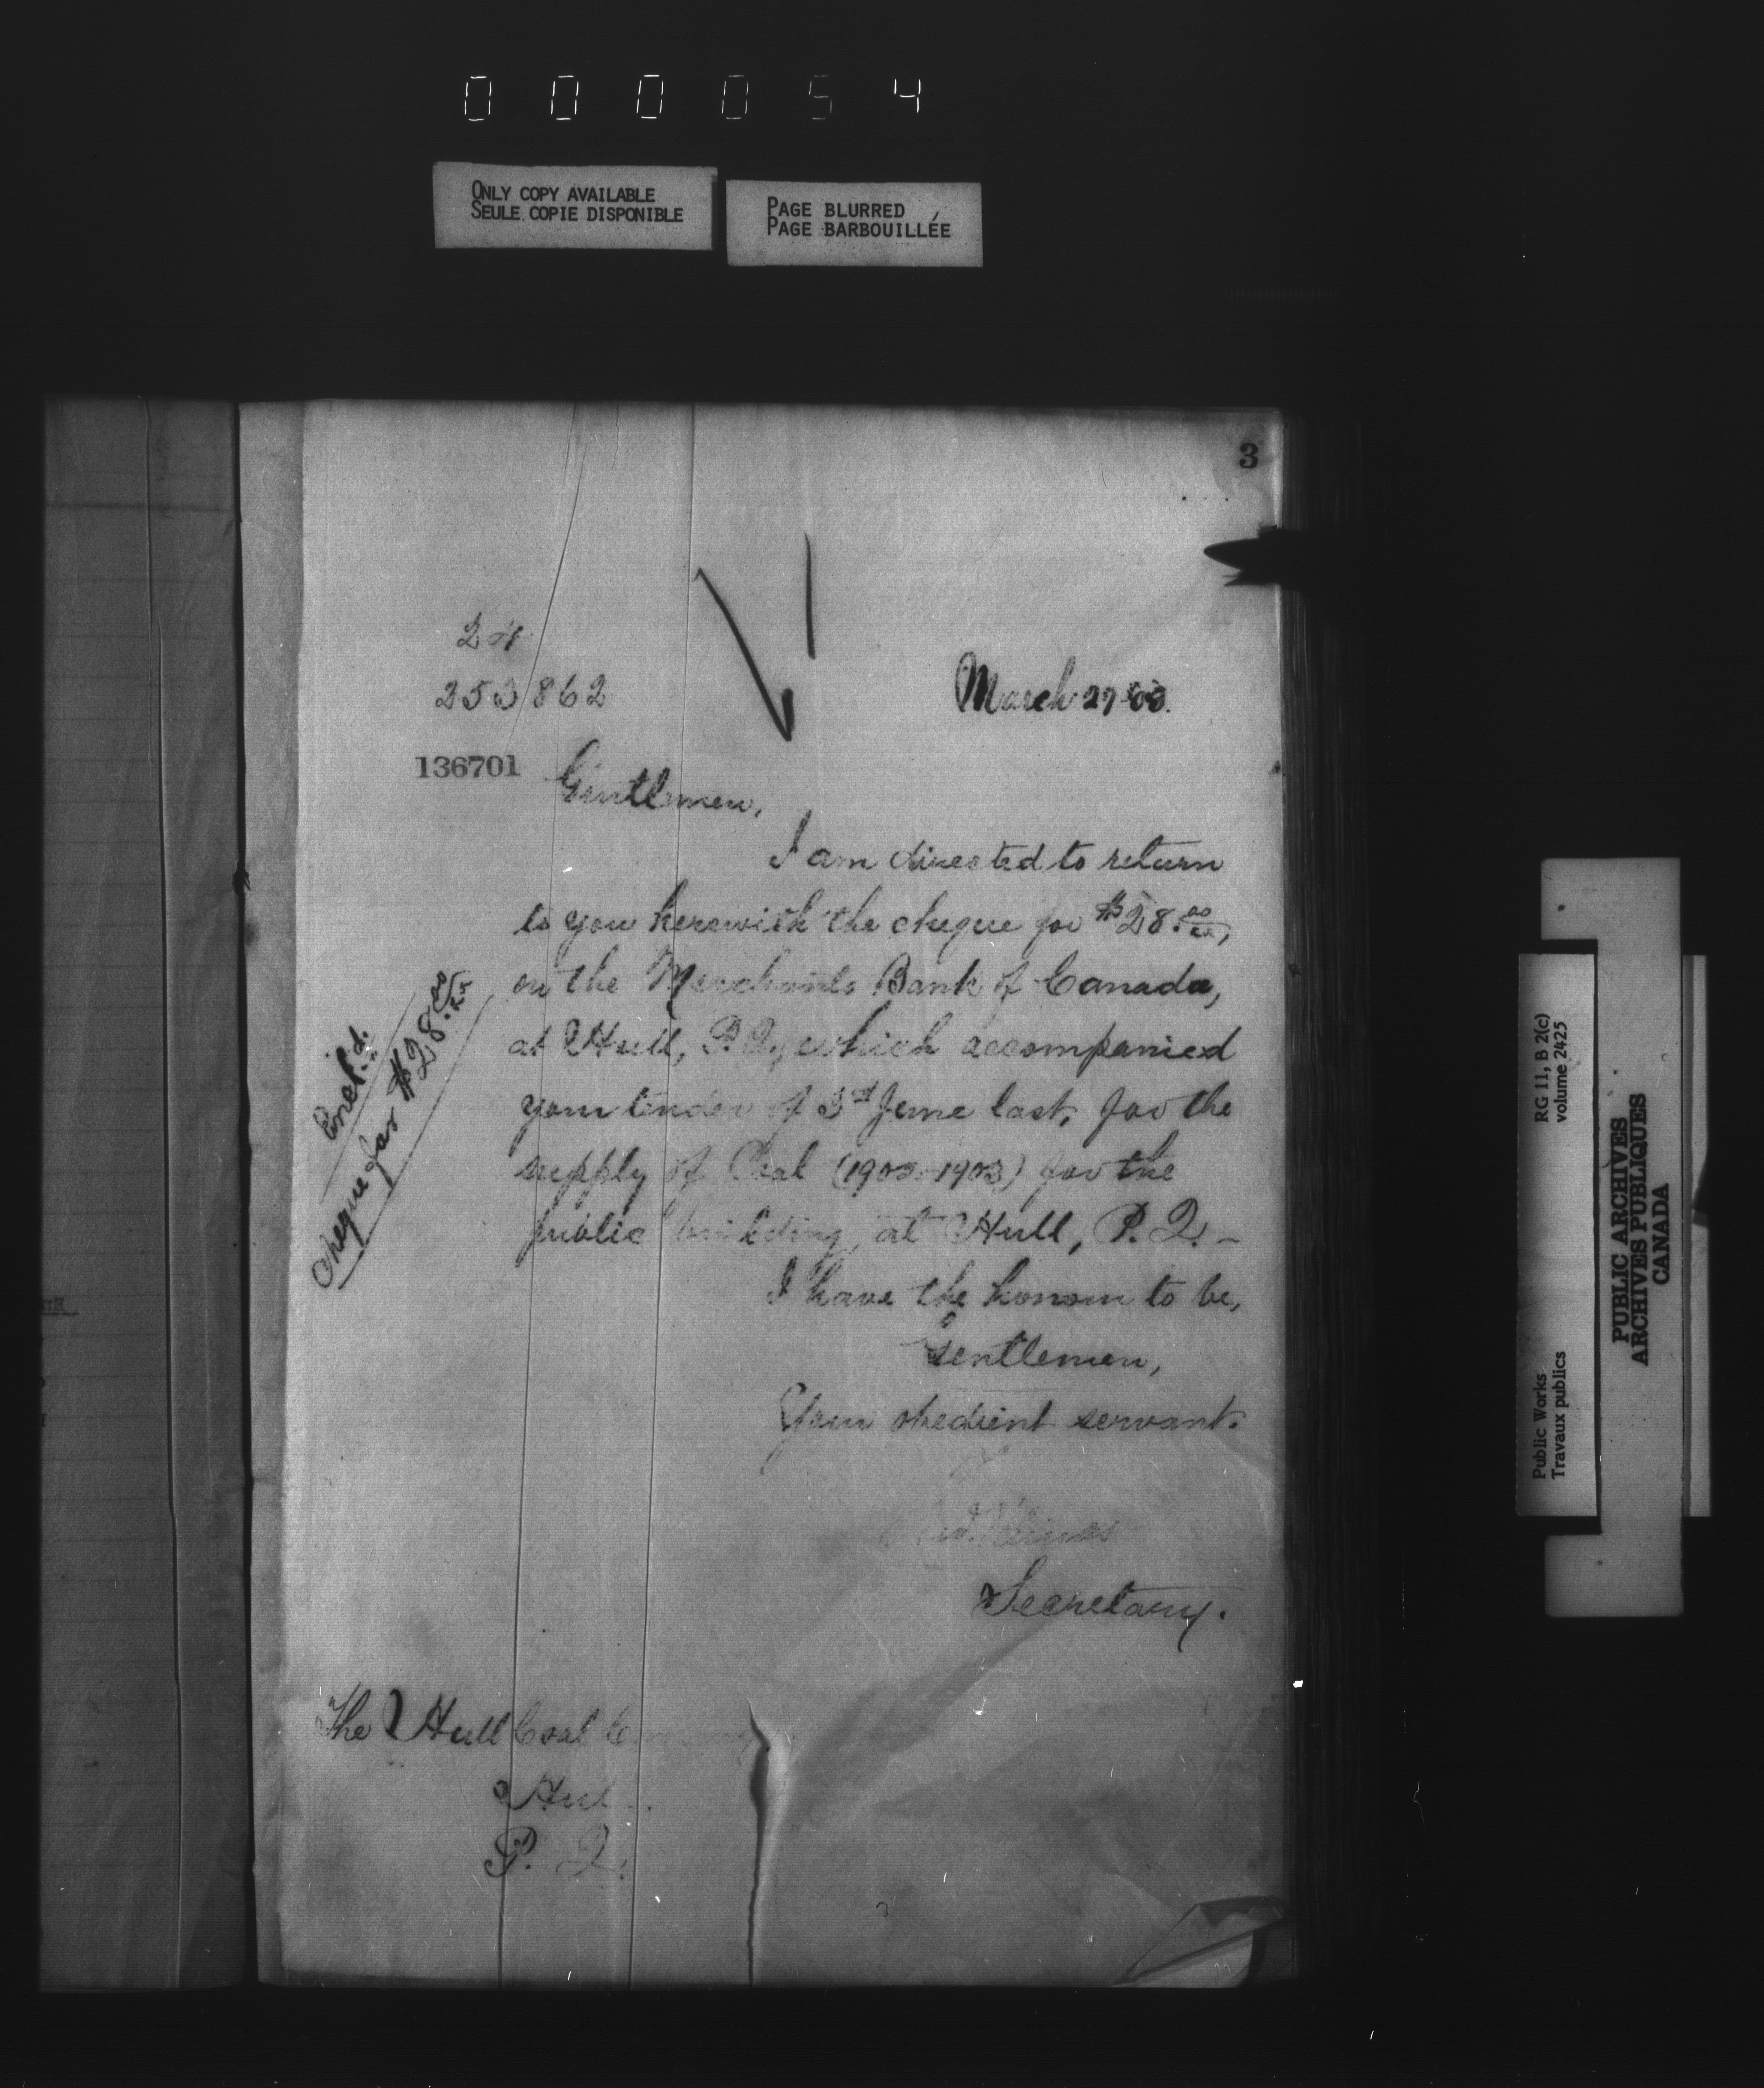 000054
ONLY COPY AVAILABLE
SEULE COPIE DISPONIBLE
PAGE BLURRED
PAGE BARBOUILLÉE
3
24
253862
March 27-03.
136701
Gentlemen,
I am directed to return
to you herewith the cheque for $28.00,
on the Merchants Bank of Canada,
at Hull, P.Q., which accompanied
your tender of 3rd June last, for the
supply of Coal (1902-1903) for the
public building, at Hull, P.Q. –
I have the honour to be,
Gentlemen,
Your obedient servant.
Secretary.
Encl.d.
Cheque for $28.00
The Hull Coal Company
Hull
P. Q.
RG 11, B 2(c)
volume 2425
Public Works
Travaux publics
PUBLIC ARCHIVES
ARCHIVES PUBLIQUES
CANADA